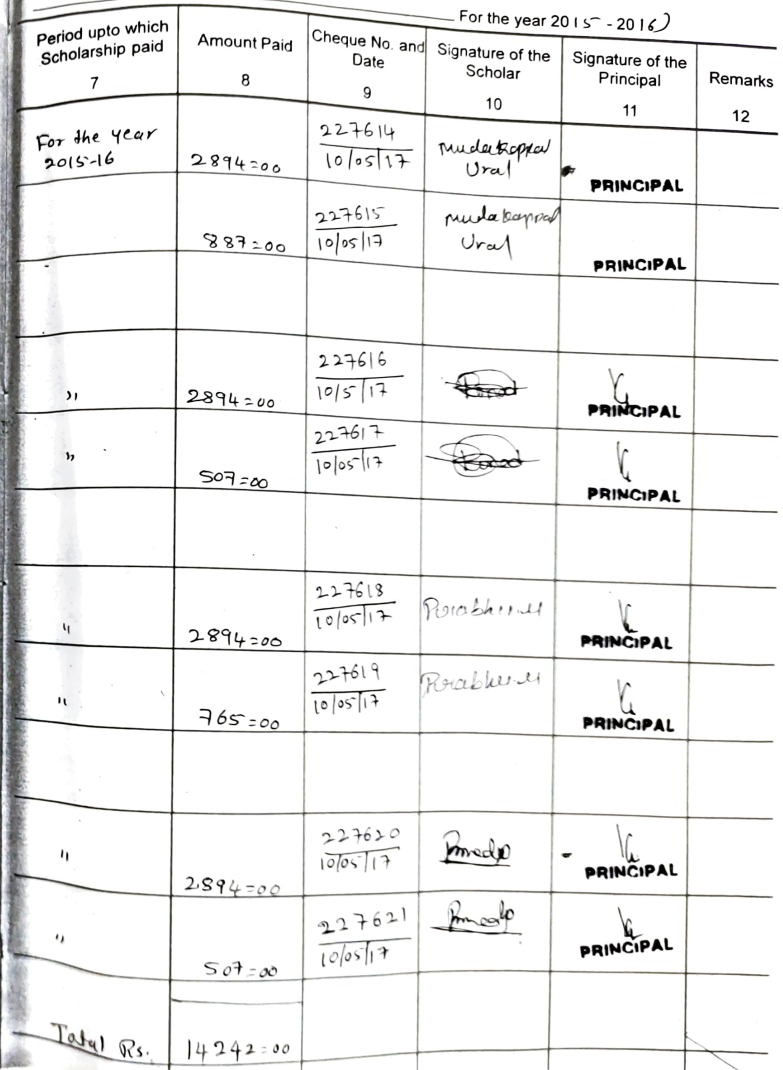 For the year 2015 - 2016)
Period upto which Scholarship paid Amount Paid Cheque No. and Date Signature of the Scholar Signature of the Principal Remarks
7 8 9 10 11 12
For the year 2015-16 2894=00 227614 10/05/17 Ural PRINCIPAL
887=00 227615 10/05/17 Ural PRINCIPAL
,, 2894=00 227616 10/5/17 PRINCIPAL
,, 507=00 227617 10/05/17 PRINCIPAL
" 2894=00 227618 10/05/17 PRINCIPAL
" 765=00 227619 10/05/17 PRINCIPAL
" 2894=00 227620 10/05/17 PRINCIPAL
" 507=00 227621 10/05/17 PRINCIPAL
Total Rs. 14242=00